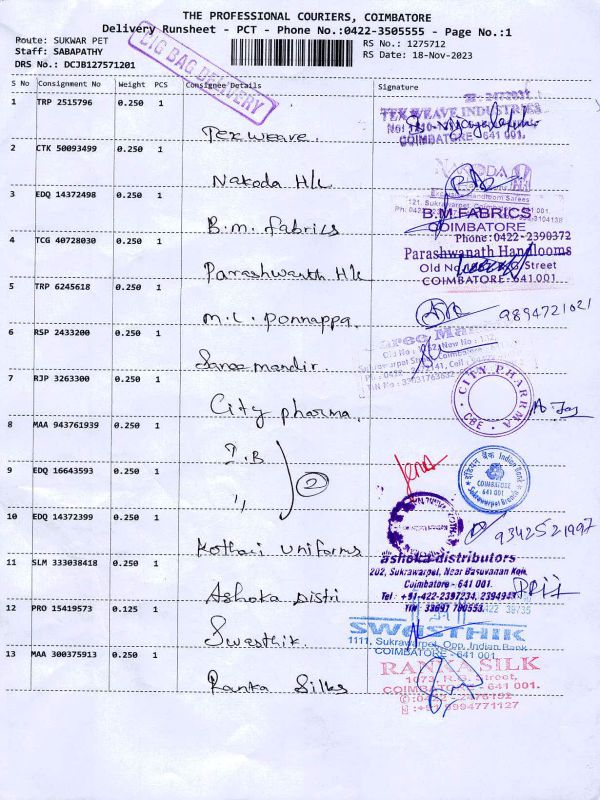 THE PROFESSIONAL COURIERS, COIMBATORE
Delivery Runsheet - PCT - Phone No.:0422-3505555 - Page No.:1
Route: SUKWAR PET
Staff: SABAPATHY
DRS No.: DCJB127571201
RS No.: 1275712
RS Date: 18-Nov-2023
BIG BAG DELIVERY
S No Consignment No Weight PCS Consignee Details Signature
1 TRP 2515796 0.250 1 Tex weave.
TEX WEAVE INDUSTRIES
COIMBATORE - 641 001.
2 CTK 50093499 0.250 1 Nakoda H/L
NAKODA
3 EDQ 14372498 0.250 1 B.M. Fabrics
B.M.FABRICS
COIMBATORE
Phone:0422-2390372
4 TCG 40728030 0.250 1 Parashwanth H/L
Parashwanath Handlooms
Street
COIMBATORE-641001
5 TRP 6245618 0.250 1 M.L. Ponnappa.
9894721021
6 RSP 2433200 0.250 1 Saree mandir
7 RJP 3263300 0.250 1 City pharma.
CITY PHARRMA
CBE
8 MAA 943761939 0.250 1 I.B
9 EDQ 16643593 0.250 1 ,,
2
इंडियन बैंक Indian Bank
COIMBATORE
641 001
Sukrawarpet Branch
10 EDQ 14372399 0.250 1 Kothari Uniforms
9342521997
11 SLM 333038418 0.250 1 Ashoka Distri
ashoka distributors
202, Sukrawarpet, Near Basuvanan Koil,
Coimbatore - 641 001.
Tel : +91-422-2397234, 2394943
12 PRO 15419573 0.125 1 Swasthik
SWASTHIK
1111, Sukrawarpet, Opp. Indian Bank
COIMBATORE - 641 001
13 MAA 300375913 0.250 1 Ranka Silks
RANKA SILK
1073, R.G. Street,
COIMBATORE - 641 001.
+91 9994771127